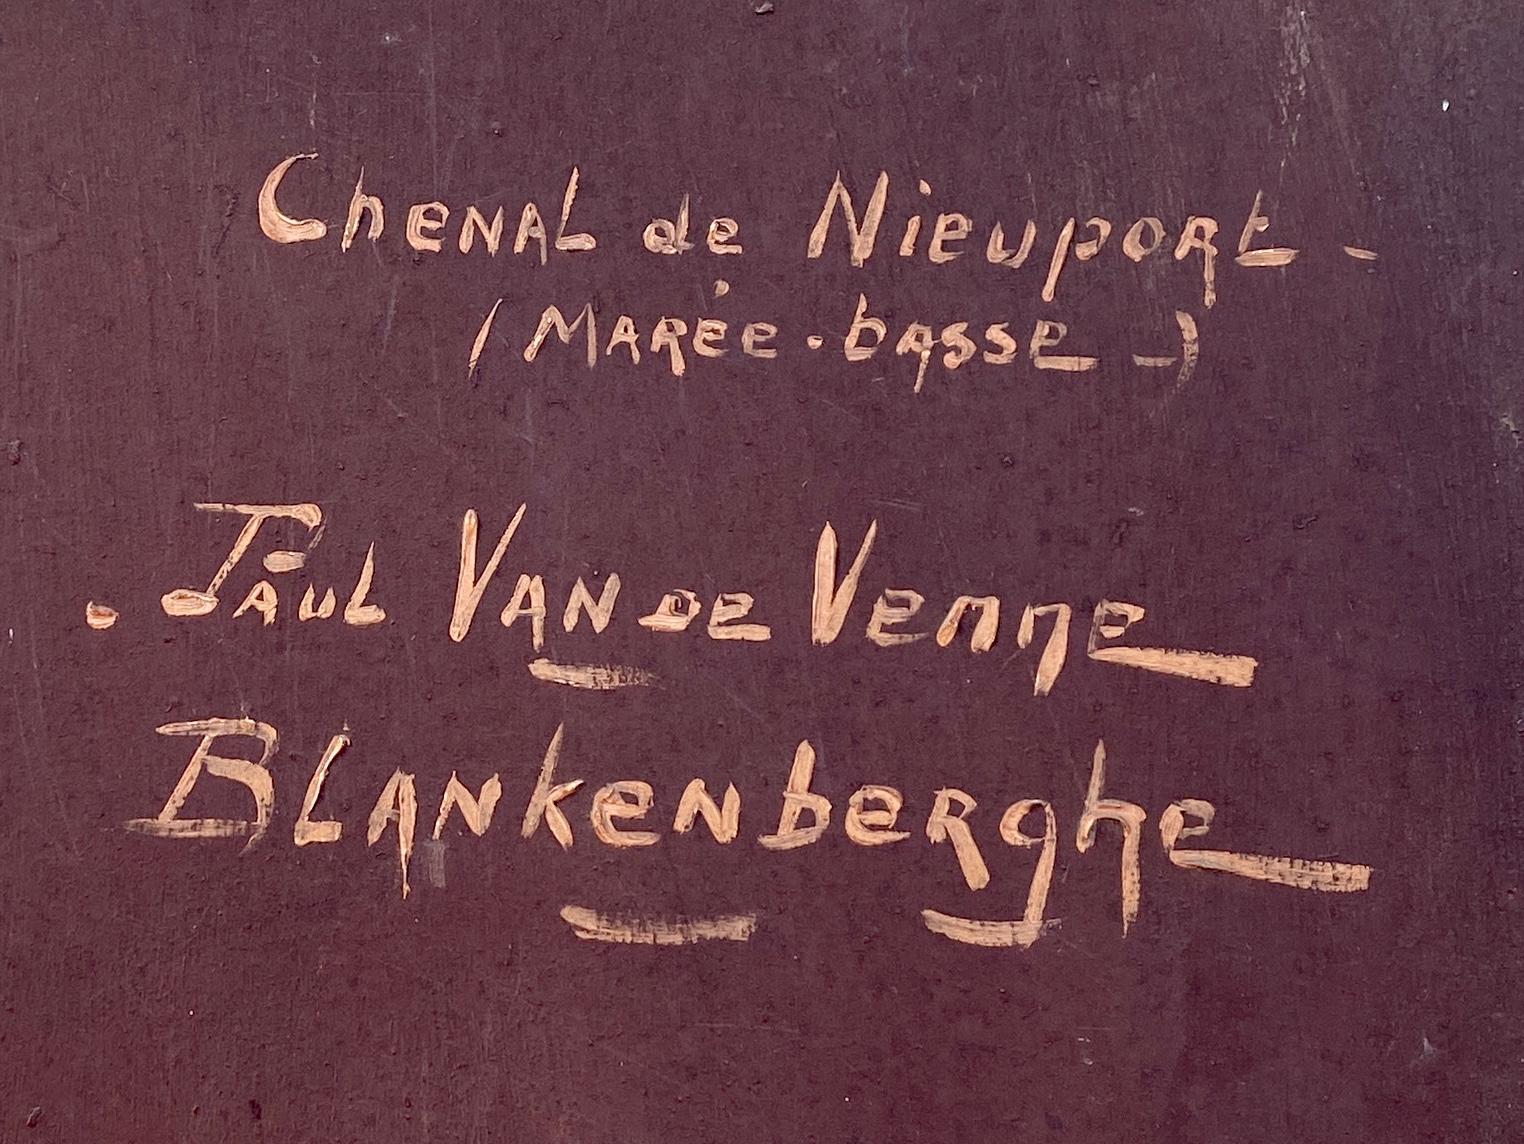 Chenal de Nieuport -
(Marée-basse -)
. Paul Van de Venne
Blankenberghe